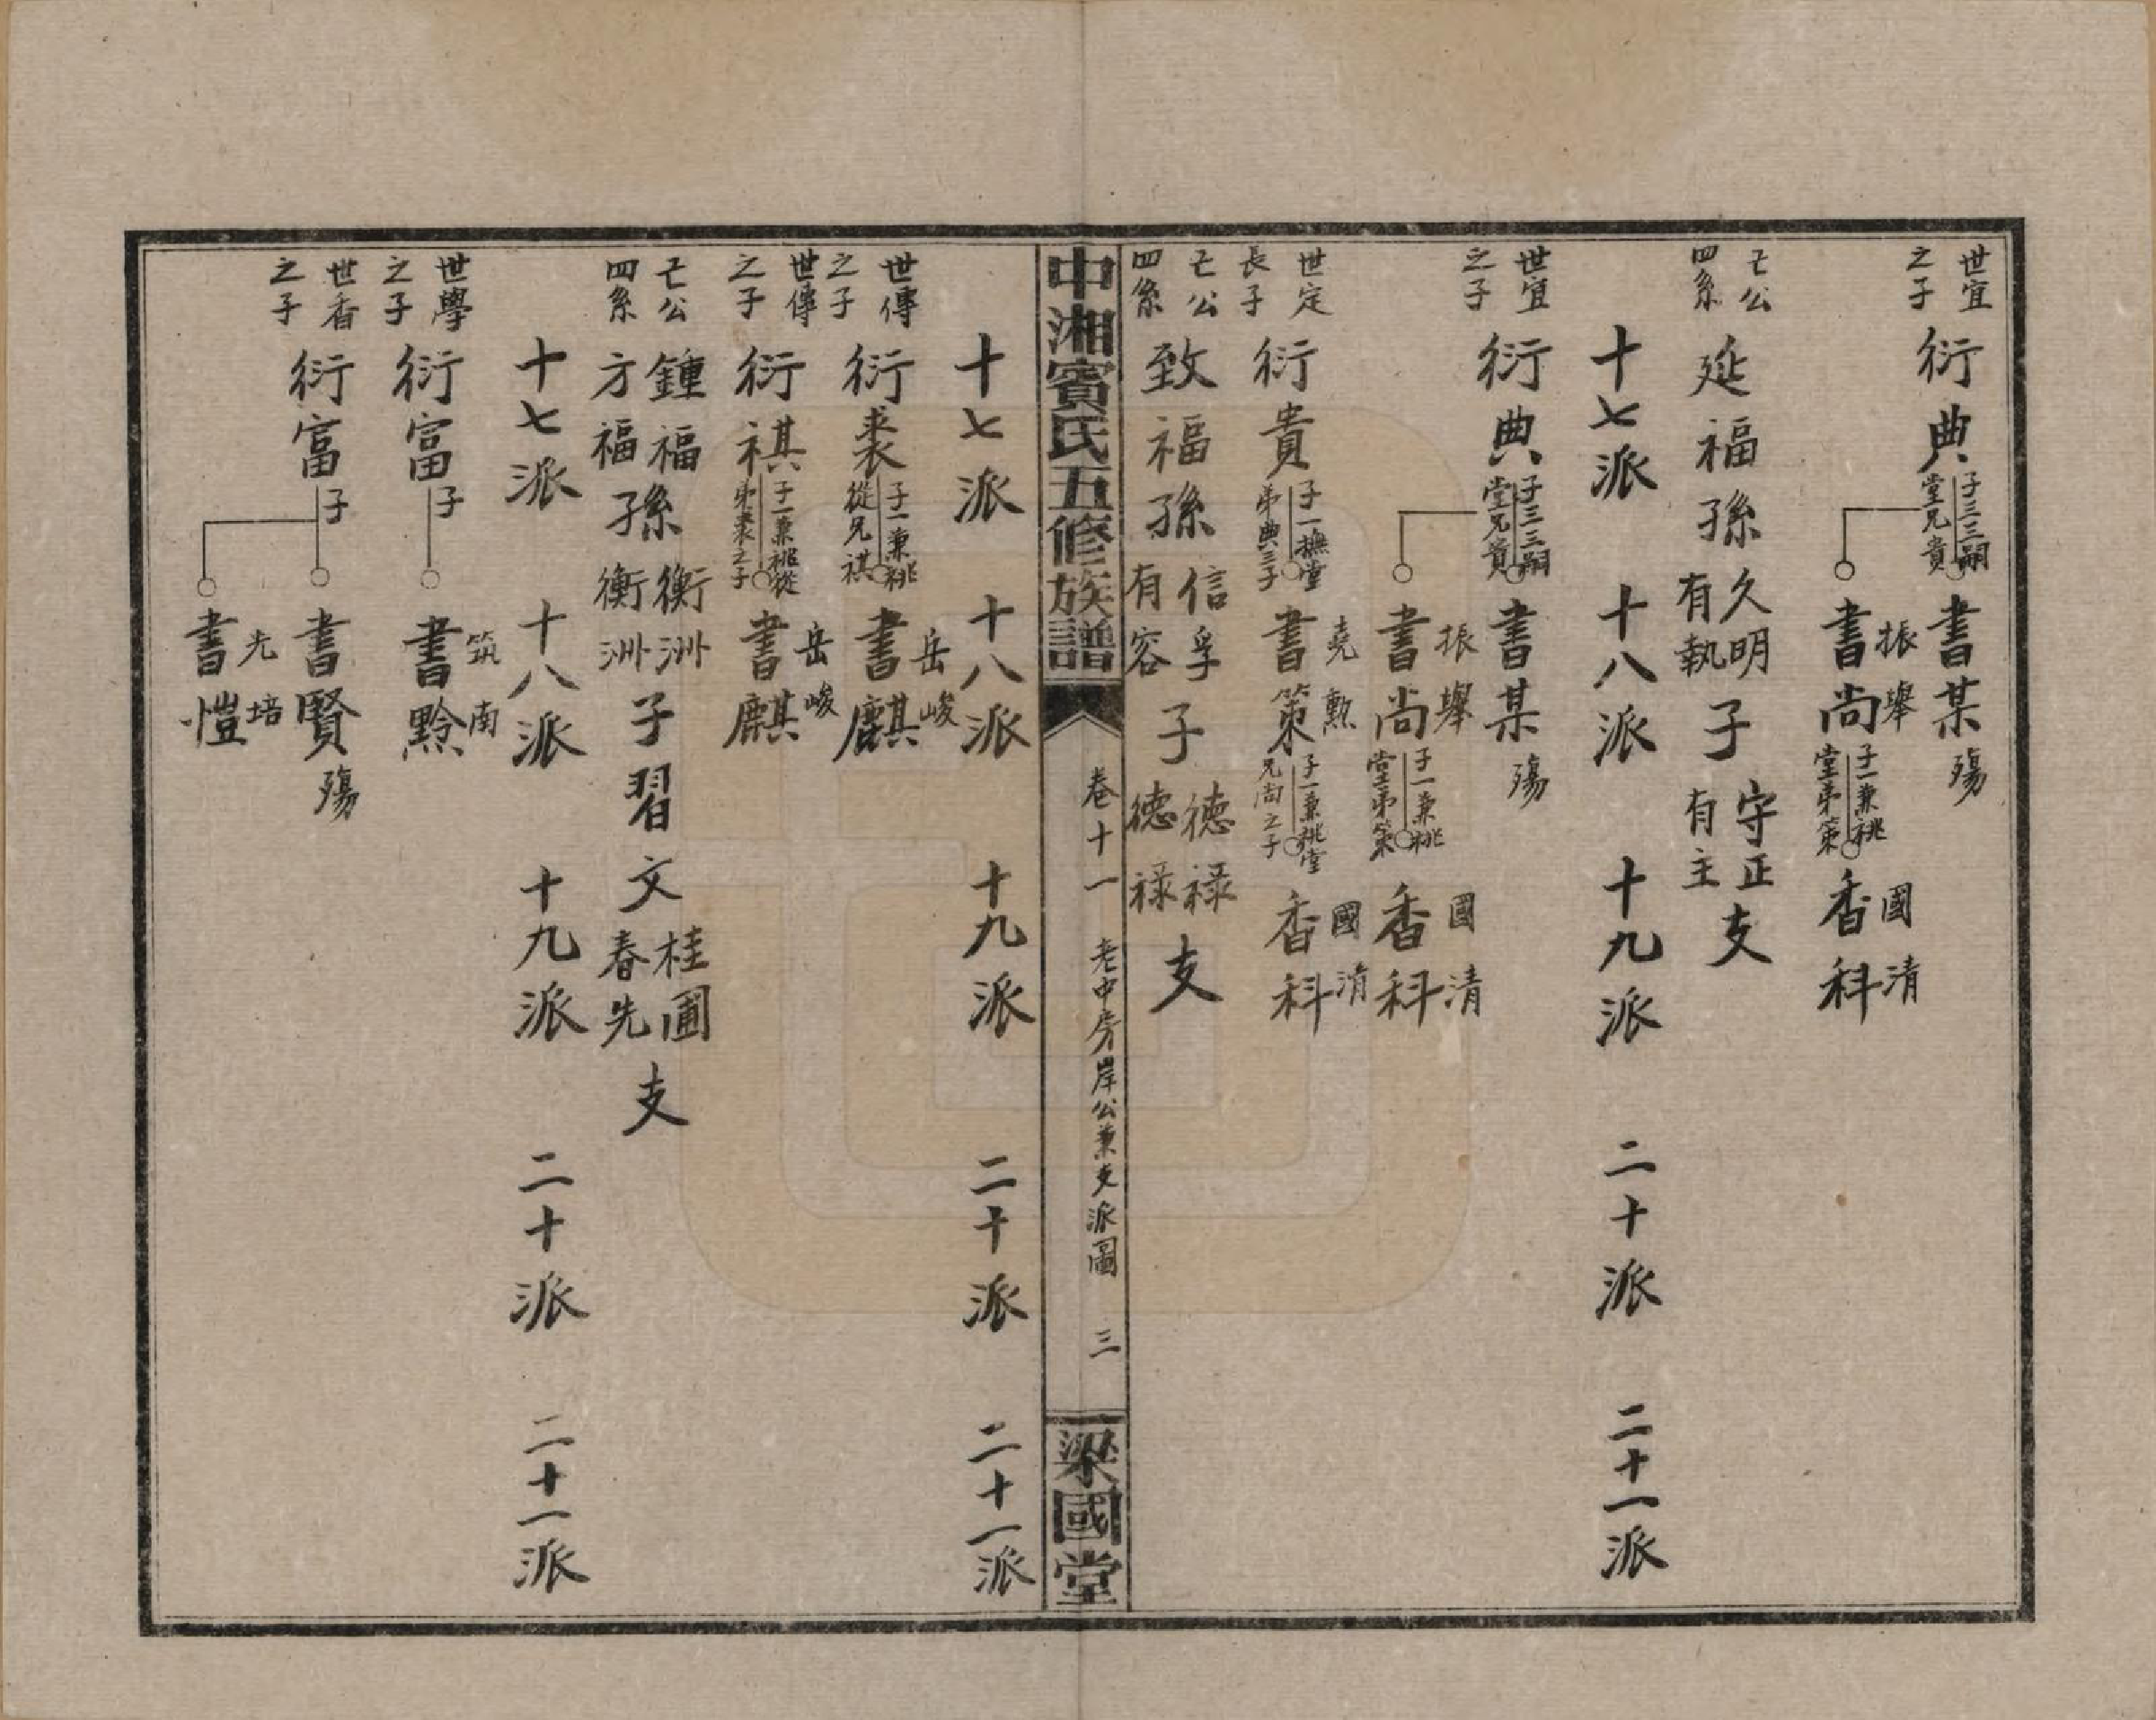 世宜之子 衍典 子三三嗣堂兄貴 書某 殤
振舉 書尚 子一兼祧堂弟策 國清 香科
己公四系 延福孫 久明 有執 子 守正 有主 支
十七派 十八派 十九派 二十派 二十一派
世宜之子 衍典 子三三嗣堂兄貴 書某 殤
振舉 書尚 子一兼祧堂弟策 國清 香科
世定長子 衍貴 子一撫堂弟典三子 堯勲 書策 子一兼祧堂兄尚之子 國清 香科
己公四系 致福孫 信孚 有容 子 德祿 德祿 支
中湘賓氏五修族譜 卷十一 老中房岸公兼支派圖 三 梁國堂
十七派 十八派 十九派 二十派 二十一派
世傳之子 衍裘 子一兼祧從兄祺 岳峻 書麒
世傳之子 衍祺 子一兼祧從弟裘之子 岳峻 書麒
己公四系 鍾福 方福 孫 衡洲 衡洲 子習文 桂圃 春先 支
十七派 十八派 十九派 二十派 二十一派
世學之子 衍富 子 筑南 書黔
世香之子 衍富 子 書賢 殤
光培 書愷